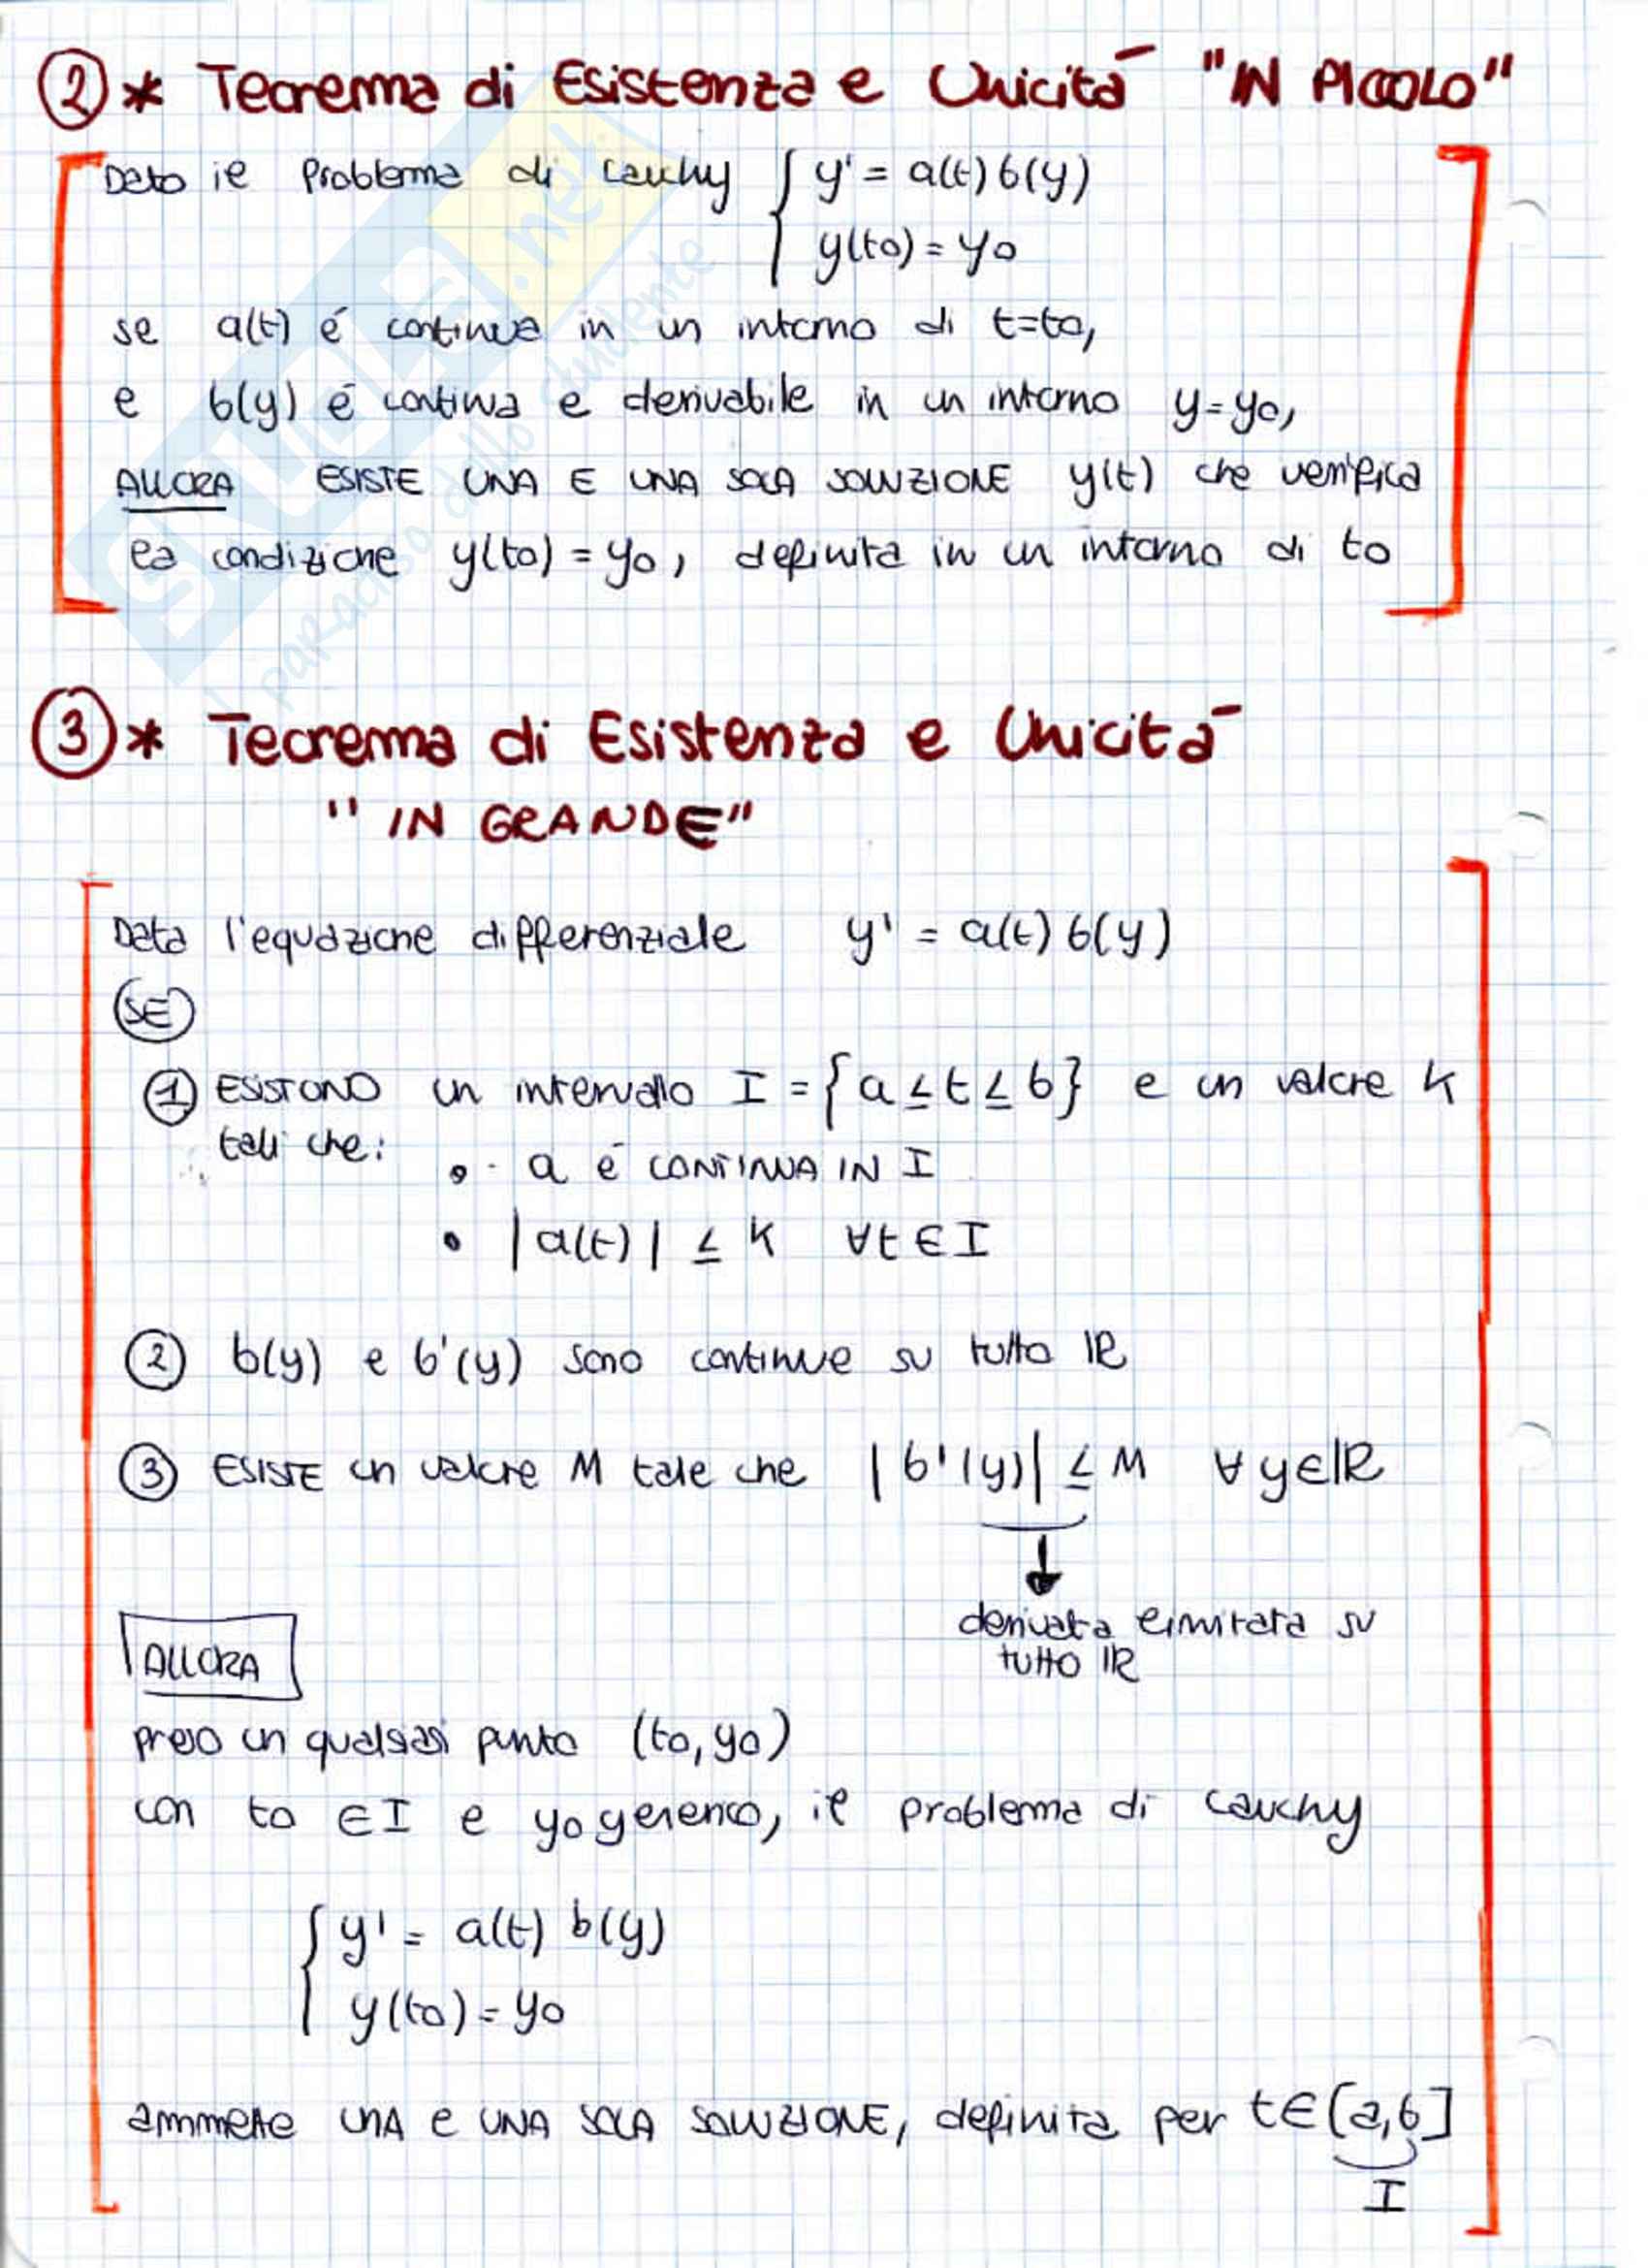 ② * Teorema di Esistenza e Unicità "IN PICCOLO"
Dato il Problema di Cauchy { y' = a(t) b(y)
y(t0) = y0
se a(t) é continua in un intorno di t=t0,
e b(y) é continua e derivabile in un intorno y=y0,
ALLORA ESISTE UNA E UNA SOLA SOLUZIONE y(t) che verifica
la condizione y(t0) = y0, definita in un intorno di t0
SKUOLA.net
il paradiso dello studente
③ * Teorema di Esistenza e Unicità
"IN GRANDE"
Data l'equazione differenziale y' = a(t) b(y)
SE
① ESISTONO un intervallo I = {a ≤ t ≤ b} e un valore K
tali che:
• a é CONTINUA IN I
• |a(t)| ≤ K ∀t ∈ I
② b(y) e b'(y) sono continue su tutto ℝ
③ ESISTE un valore M tale che |b'(y)| ≤ M ∀ y∈ℝ
↓
derivata limitata su
tutto ℝ
ALLORA
preso un qualsiasi punto (t0, y0)
con t0 ∈ I e y0 generico, il problema di Cauchy
{ y' = a(t) b(y)
y(t0) = y0
ammette UNA e UNA SOLA SOLUZIONE, definita per t∈[a,b]
I